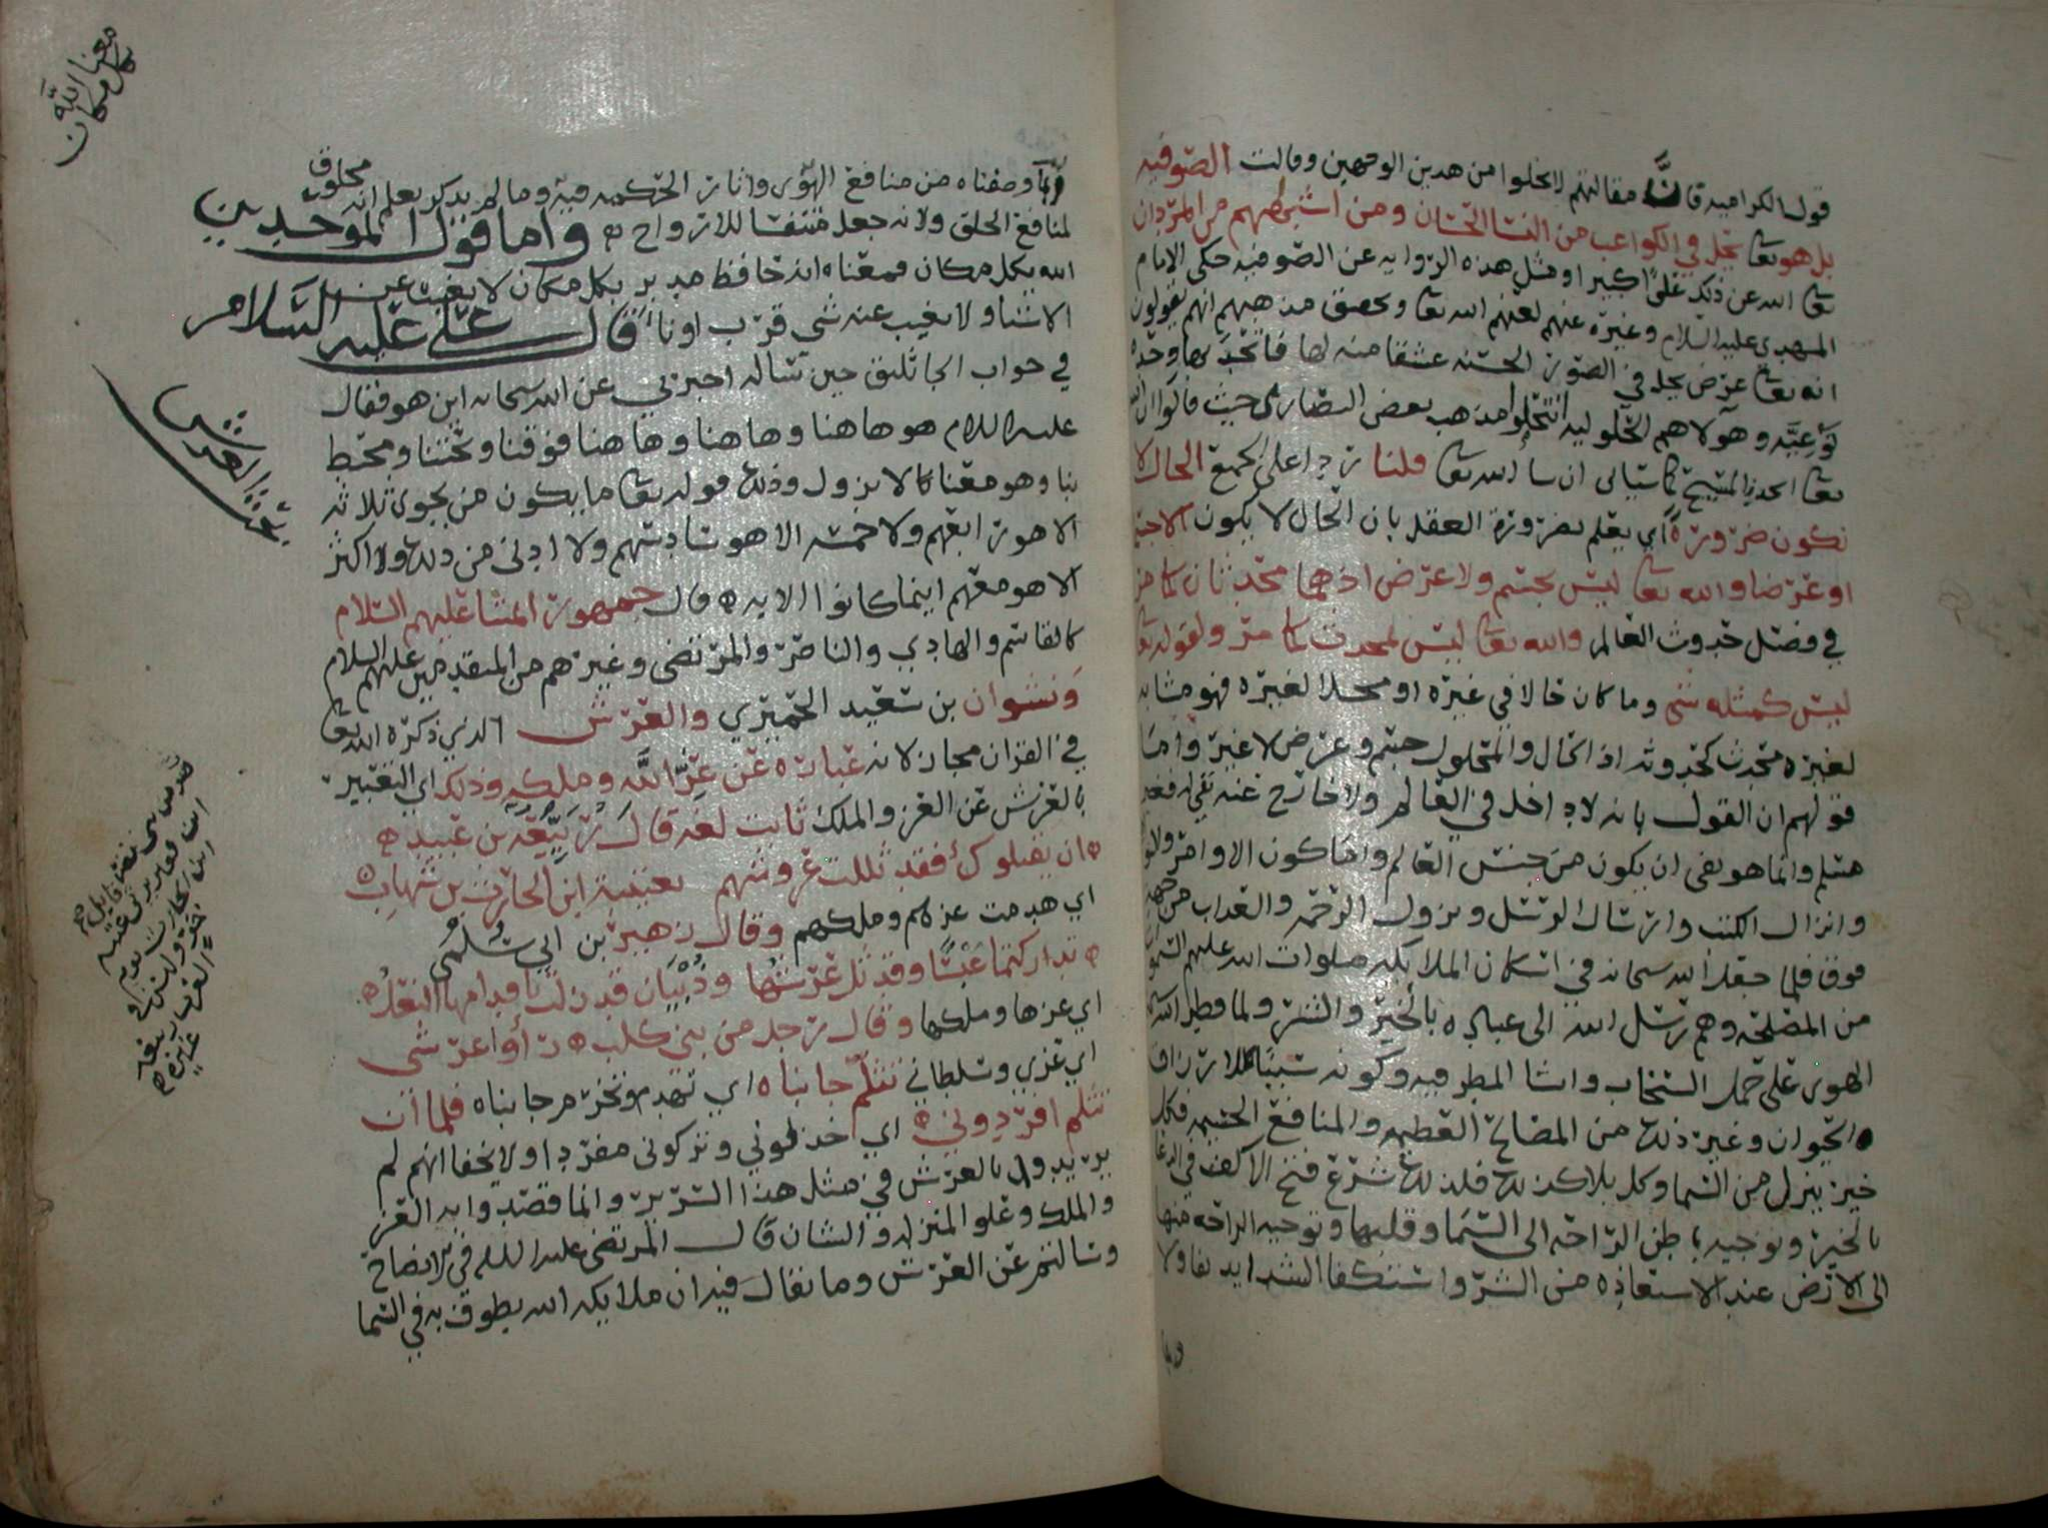 قول الكراميه فان مقالتهم لا يخلوا من هذين الوجهين وقالت الصوفيه
بل هو تعا يحل في الكواعب من النسا الحسان ومن اشبههم من المردان
تعا الله عن ذلك علوا كبيرا ومثل هذه الروايه عن الصوفيه حكى الامام
المهدي عليه السلام وغيره عنهم لعنهم الله تعا وتحقيق مذهبهم انهم يقولون
انه تعا عرض يحل في الصور الحسنه عشقا منه لها فاتحد بها وحده
نوعيه وهولاهم الحلوليه انتحلوا مذهب بعض النصارى حيث قالوا ان الله
تعا اتحد بالمسيح كما سياتي ان شا الله تعا قلنا ردا على الجميع الحال لا
يكون ضرورة اي يعلم بضرورة العقل بان الحال لا يكون الا جسما
او عرضا والله تعا ليس بجسم ولا عرض اذ هما محدثان كما مر
في فصل حدوث العالم والله تعا ليس بمحدث كما مر ولقوله تعا
ليس كمثله شي وما كان حالا في غيره او محلا لغيره فهو مشابه
لغيره محدث كحدوثه اذ الحال والمحلول جسم وعرض لا غير واما
قولهم ان القول بانه لا داخل في العالم ولا خارج عنه نفي له فغير
مسلم وانما هو نفى ان يكون من جنس العالم واما كون الاوامر والنواهي
وانزال الكتب وارسال الرسل ونزول الرحمه والعذاب من جهة
فوق فلما جعل الله سبحانه في اسكان الملايكه صلوات الله عليهم السموات
من المصلحه وهم رسل الله الى عباده بالخير والشر ولما فطر الله
الهوى على حمل السحاب وانشا المطر فيه وكونه سببا للارزاق
والحيوان وغير ذلك من المصالح العظيمه والمنافع الجسيمه فكل
خير ينزل من السما وكل بلا كذلك فلذلك شرع فتح الاكف في الدعا
بالخير وتوجيه باطن الراحه الى السما وقلبها وتوجيه الراحه منها
الى الارض عند الاستعاذه من الشر واستكفا الشدايد نفاولا
وبما
وبما وصفناه من منافع الهوى واثار الحكمه فيه وما لم يذكر يعلم انه مخلوق
لمنافع الخلق ولانه جعل متنفسا للارواح واما قول الموحدين
الله بكل مكان فمعناه انه حافظ مدبر بكل مكان لا يغيب عن
الاشيا ولا يغيب عنه شي قرب او نا قال علي عليه السلام
في جواب الجاثليق حين ساله اخبرني عن الله سبحانه اين هو فقال
عليه السلام هو هاهنا وهاهنا وهاهنا فوقنا وتحتنا ومحيط
بنا وهو معنا لا يزول وذلك قوله تعا ما يكون من نجوى ثلاثه
الا هو رابعهم ولا خمسه الا هو سادسهم ولا ادنى من ذلك ولا اكثر
الا هو معهم اينما كانوا الايه قال جمهور ائمتنا عليهم السلام
كالقاسم والهادي والناصر والمرتضى وغيرهم من المتقدمين عليهم السلام
ونشوان بن سعيد الحميري والعرش الذي ذكره الله تعا
في القران مجاز لانه عباره عن عز الله وملكه وذلك اي التعبير
بالعرش عن العز والملك ثابت لغه قال ربيعه بن عبيد
ان يقتلوك فقد ثللت عروشهم بعتيبة ابن الحارث بن شهاب
اي هدمت عزهم وملكهم وقال زهير بن ابي سلمى
تداركتما عبسا وقد ثل عرشها وذبيان قد زلت باقدامها النعل
اي عزها وملكها وقال رجل من بني كلب راوا عرشى
اي عزي وسلطاني تثلم جانباه اي تهدم وتخرم جانباه فلما ان
تثلم افردوني اي خذلوني وتركوني مفردا ولا يخفا انهم لم
يريدوا بالعرش في مثل هذا السرير وانما قصدوا به العز
والملك وعلو المنزله والشان قال المرتضى عليه السلام في الايضاح
وسالتم عن العرش وما يقال فيه ان ملايكه الله يطوف به في السما
معنا الله
بكل مكان
العرش